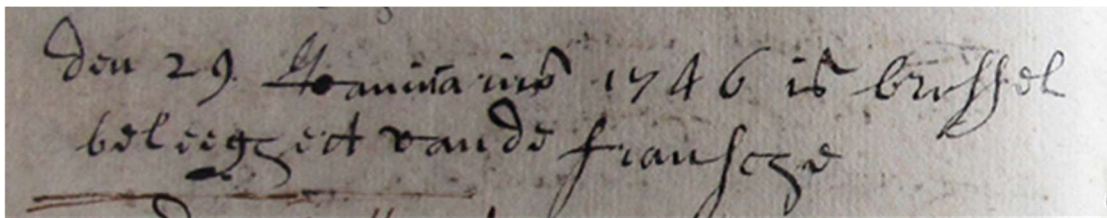 den 29 Januarius 1746 is brussel
beleegert vande fransche